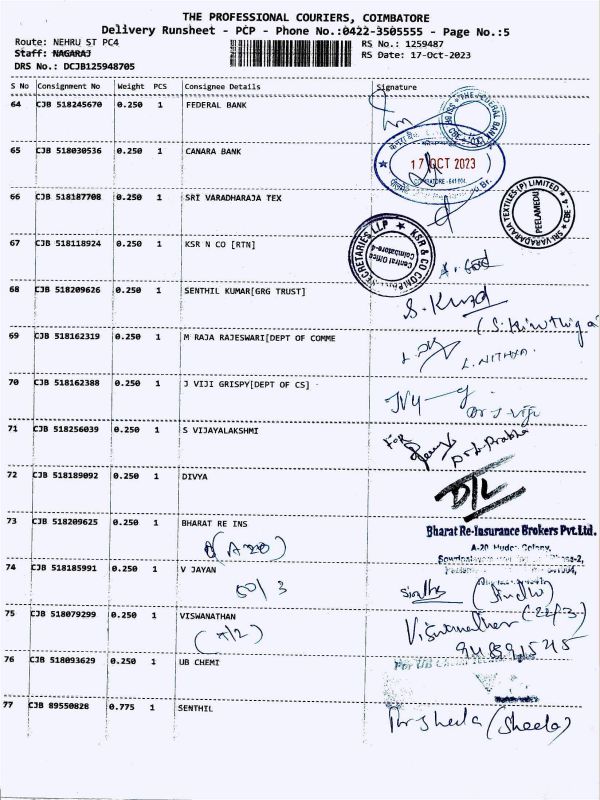 THE PROFESSIONAL COURIERS, COIMBATORE
Delivery Runsheet - PCP - Phone No.:0422-3505555 - Page No.:5
Route: NEHRU ST PC4
RS No.: 1259487
Staff: NAGARAJ
RS Date: 17-Oct-2023
DRS No.: DCJB125948705
S No Consignment No Weight PCS Consignee Details Signature
64 CJB 518245670 0.250 1 FEDERAL BANK
65 CJB 518030536 0.250 1 CANARA BANK
17 OCT 2023
66 CJB 518187708 0.250 1 SRI VARADHARAJA TEX
SRI VARADARAJA TEXTILES (P) LIMITED
PEELAMEDU
CBE - 4
67 CJB 518118924 0.250 1 KSR N CO [RTN]
KSR & CO COMPANY SECRETARIES LLP
Central Office
Coimbatore-4
68 CJB 518209626 0.250 1 SENTHIL KUMAR[GRG TRUST]
(S. Kiruthiga
69 CJB 518162319 0.250 1 M RAJA RAJESWARI[DEPT OF COMME
L. NITHYA.
70 CJB 518162388 0.250 1 J VIJI GRISPY[DEPT OF CS]
Dr J. Viji
71 CJB 518256039 0.250 1 S VIJAYALAKSHMI
For
Prabha
72 CJB 518189092 0.250 1 DIVYA
D/L
73 CJB 518209625 0.250 1 BHARAT RE INS
Bharat Re-Insurance Brokers Pvt.Ltd.
(A20)
A-20, Colony,
74 CJB 518185991 0.250 1 V JAYAN
50/3
Sindhu (Sindhu)
75 CJB 518079299 0.250 1 VISWANATHAN
Viswanathan
76 CJB 518093629 0.250 1 UB CHEMI
For UB Chem
77 CJB 89550828 0.775 1 SENTHIL
Sheela (Sheela)